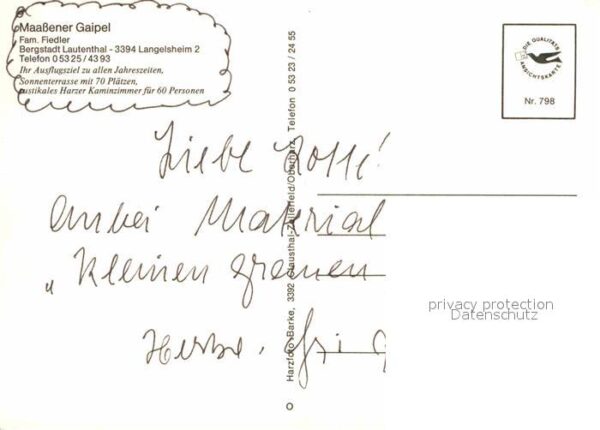 Maaßener Gaipel
Fam. Fiedler
Bergstadt Lautenthal - 3394 Langelsheim 2
Telefon 0 53 25 / 43 93
Ihr Ausflugsziel zu allen Jahreszeiten,
Sonnenterrasse mit 70 Plätzen,
rustikales Harzer Kaminzimmer für 60 Personen
DIE QUALITÄTS
ANSICHTSKARTE
Nr. 798
Harzfoto-Barke, 3392 Clausthal-Zellerfeld/Oberharz, Telefon 0 53 23 / 24 55
Liebe
anbei Material
„Kleinen
privacy protection
Datenschutz